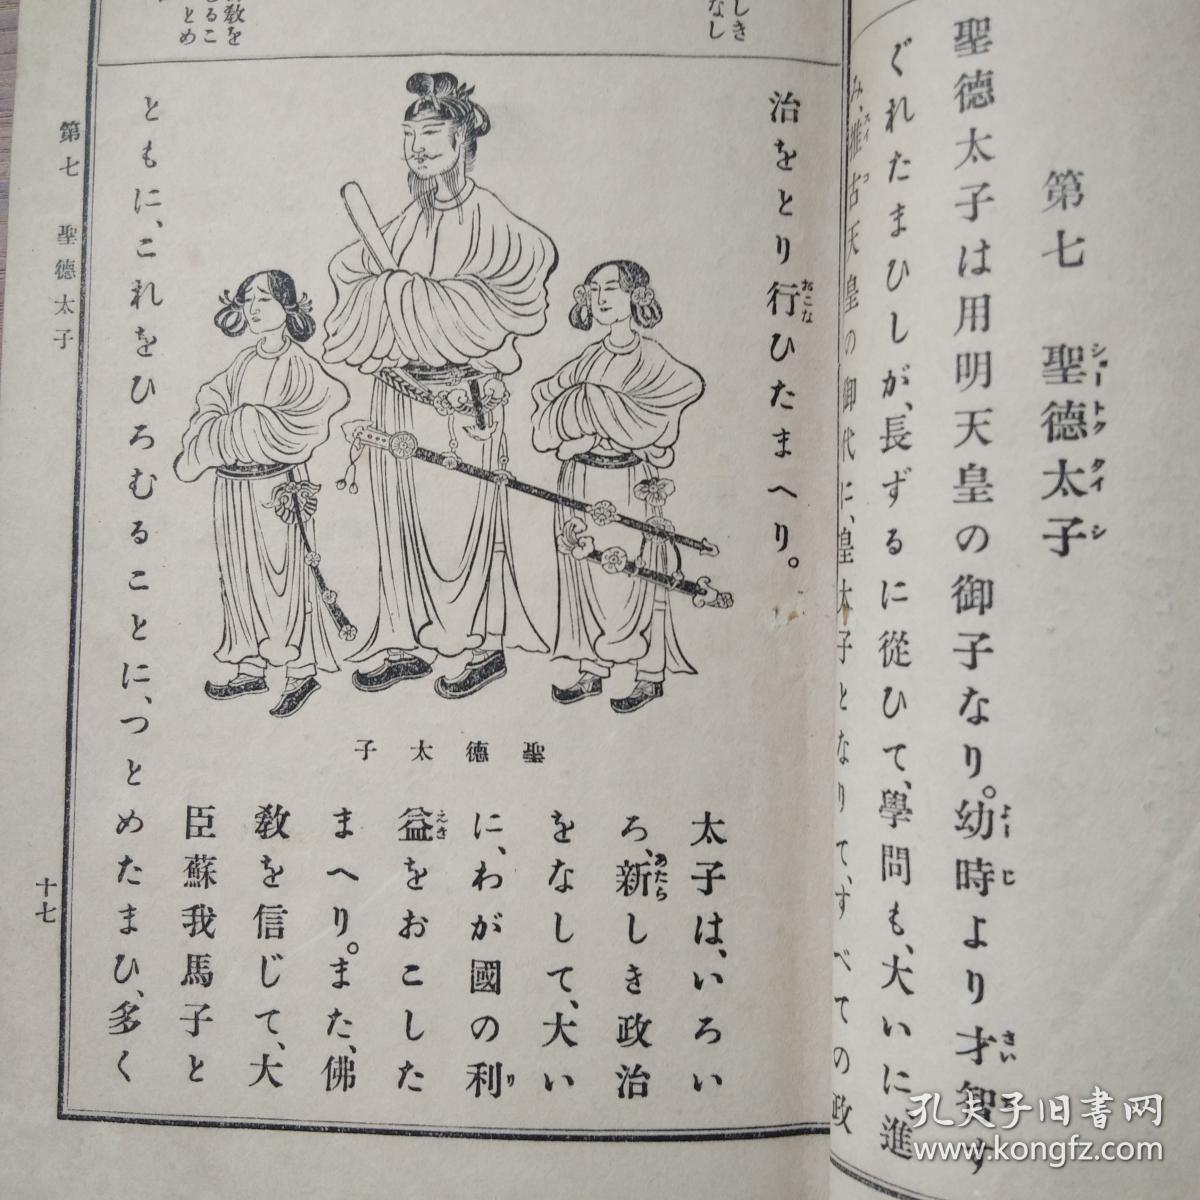 第七　聖德太子
聖德太子は用明天皇の御子なり。幼時より才智す
ぐれたまひしが、長ずるに從ひて、學問も、大いに進
み、推古天皇の御代に、皇太子となりて、すべての政
治をとり行ひたまへり。
太子は、いろい
ろ、新しき政治
をなして、大い
に、わが國の利
益をおこした
まへり。また、佛
敎を信じて、大
臣蘇我馬子と
ともに、これをひろむることに、つとめたまひ、多く
聖德太子
第七　聖德太子
十七
しき
なし
敎を
るこ
とめ
孔夫子旧書网
www.kongfz.com